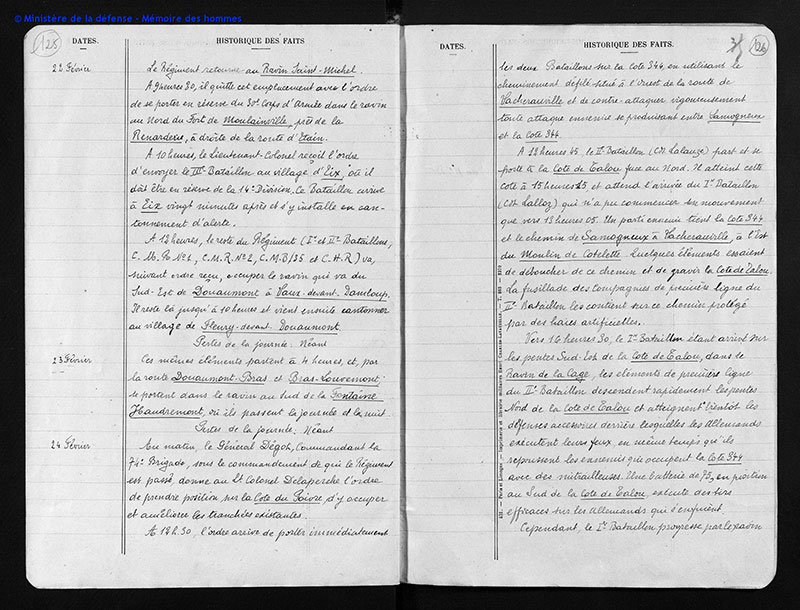 © Ministère de la défense - Mémoire des hommes
125
DATES.
HISTORIQUE DES FAITS
22 Février
Le Régiment retourne au Ravin Saint-Michel.
A 9 heures 30, il quitte cet emplacement avec l'ordre
de se porter en réserve du 30e Corps d'Armée dans le ravin
au Nord du Fort de Moulainville, près de la
Renarderie, à droite de la route d'Etain.
A 10 heures, le Lieutenant-Colonel reçoit l'ordre
d'envoyer le IIIe Bataillon au village d'Eix, où il
doit être en réserve de la 14e Division. Ce Bataillon arrive
à Eix vingt minutes après et s'y installe en can-
tonnement d'alerte.
A 13 heures, le reste du Régiment (Ier et IIe Bataillons,
C.M.R. No 1, C.M.R. No 2, C.M.B/35 et C.H.R) va,
suivant ordre reçu, occuper le ravin qui va du
Sud-Est de Douaumont à Vaux-devant-Damloup.
Il reste là jusqu'à 10 heures et vient ensuite cantonner
au village de Fleury-devant-Douaumont.
Pertes de la journée: Néant
23 Février
Ces mêmes éléments partent à 4 heures, et, par
la route Douaumont-Bras et Bras-Louvemont,
se portent dans le ravin au Sud de la Fontaine
Haudremont, où ils passent la journée et la nuit.
Pertes de la journée: Néant
24 Février
Au matin, le Général Dégot, Commandant la
74e Brigade, sous le commandement de qui le Régiment
est passé, donne au Lt Colonel Delaperche l'ordre
de prendre position sur la Cote du Poivre, d'y occuper
et améliorer les tranchées existantes.
A 12 h. 30, l'ordre arrive de porter immédiatement
DATES.
HISTORIQUE DES FAITS.
126
les deux Bataillons sur la Cote 344, en utilisant le
cheminement défilé situé à l'Ouest de la route de
Vacherauville et de contre-attaquer vigoureusement
toute attaque ennemie se produisant entre Samogneux
et la Cote 344.
A 12 heures 45, le IIe Bataillon (Ct Lalauze) part et se
porte à la Cote de Talou face au Nord. Il atteint cette
côte à 15 heures 25 et attend l'arrivée du Ier Bataillon
(Ct Lalloz) qui n'a pu commencer son mouvement
que vers 13 heures 05. Un parti ennemi tient la Cote 344
et le chemin de Samogneux à Vacherauville, à l'Est
du Moulin de Cotelette. Quelques éléments essaient
de déboucher de ce chemin et de gravir la Cote de Talou.
La fusillade des Compagnies de première ligne du
IIe Bataillon les contient sur ce chemin protégé
par des haies artificielles.
Vers 16 heures 30, le Ier Bataillon étant arrivé sur
les pentes Sud-Est de la Cote de Talou, dans le
Ravin de la Cage, les éléments de première ligne
du IIe Bataillon descendent rapidement les pentes
Nord de la Cote de Talou et atteignent bientôt les
défenses accessoires derrière lesquelles les Allemands
exécutent leurs feux, en même temps qu'ils
repoussent les ennemis qui occupent la Cote 344
avec des mitrailleuses. Une batterie de 75, en position
au Sud de la Cote de Talou, exécute des tirs
efficaces sur les Allemands qui s'enfuient.
Cependant, le Ier Bataillon progresse par le ravin